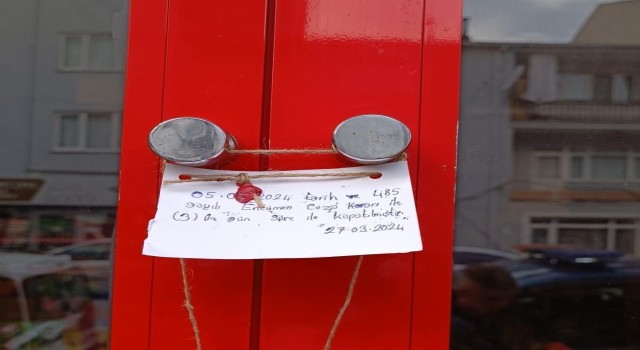 05.0 2024 tarih ve 485
Sayılı Encümen Ceza Kararı ile
(3) bir gün süre ile kapatılmıştır.
27-03-2024